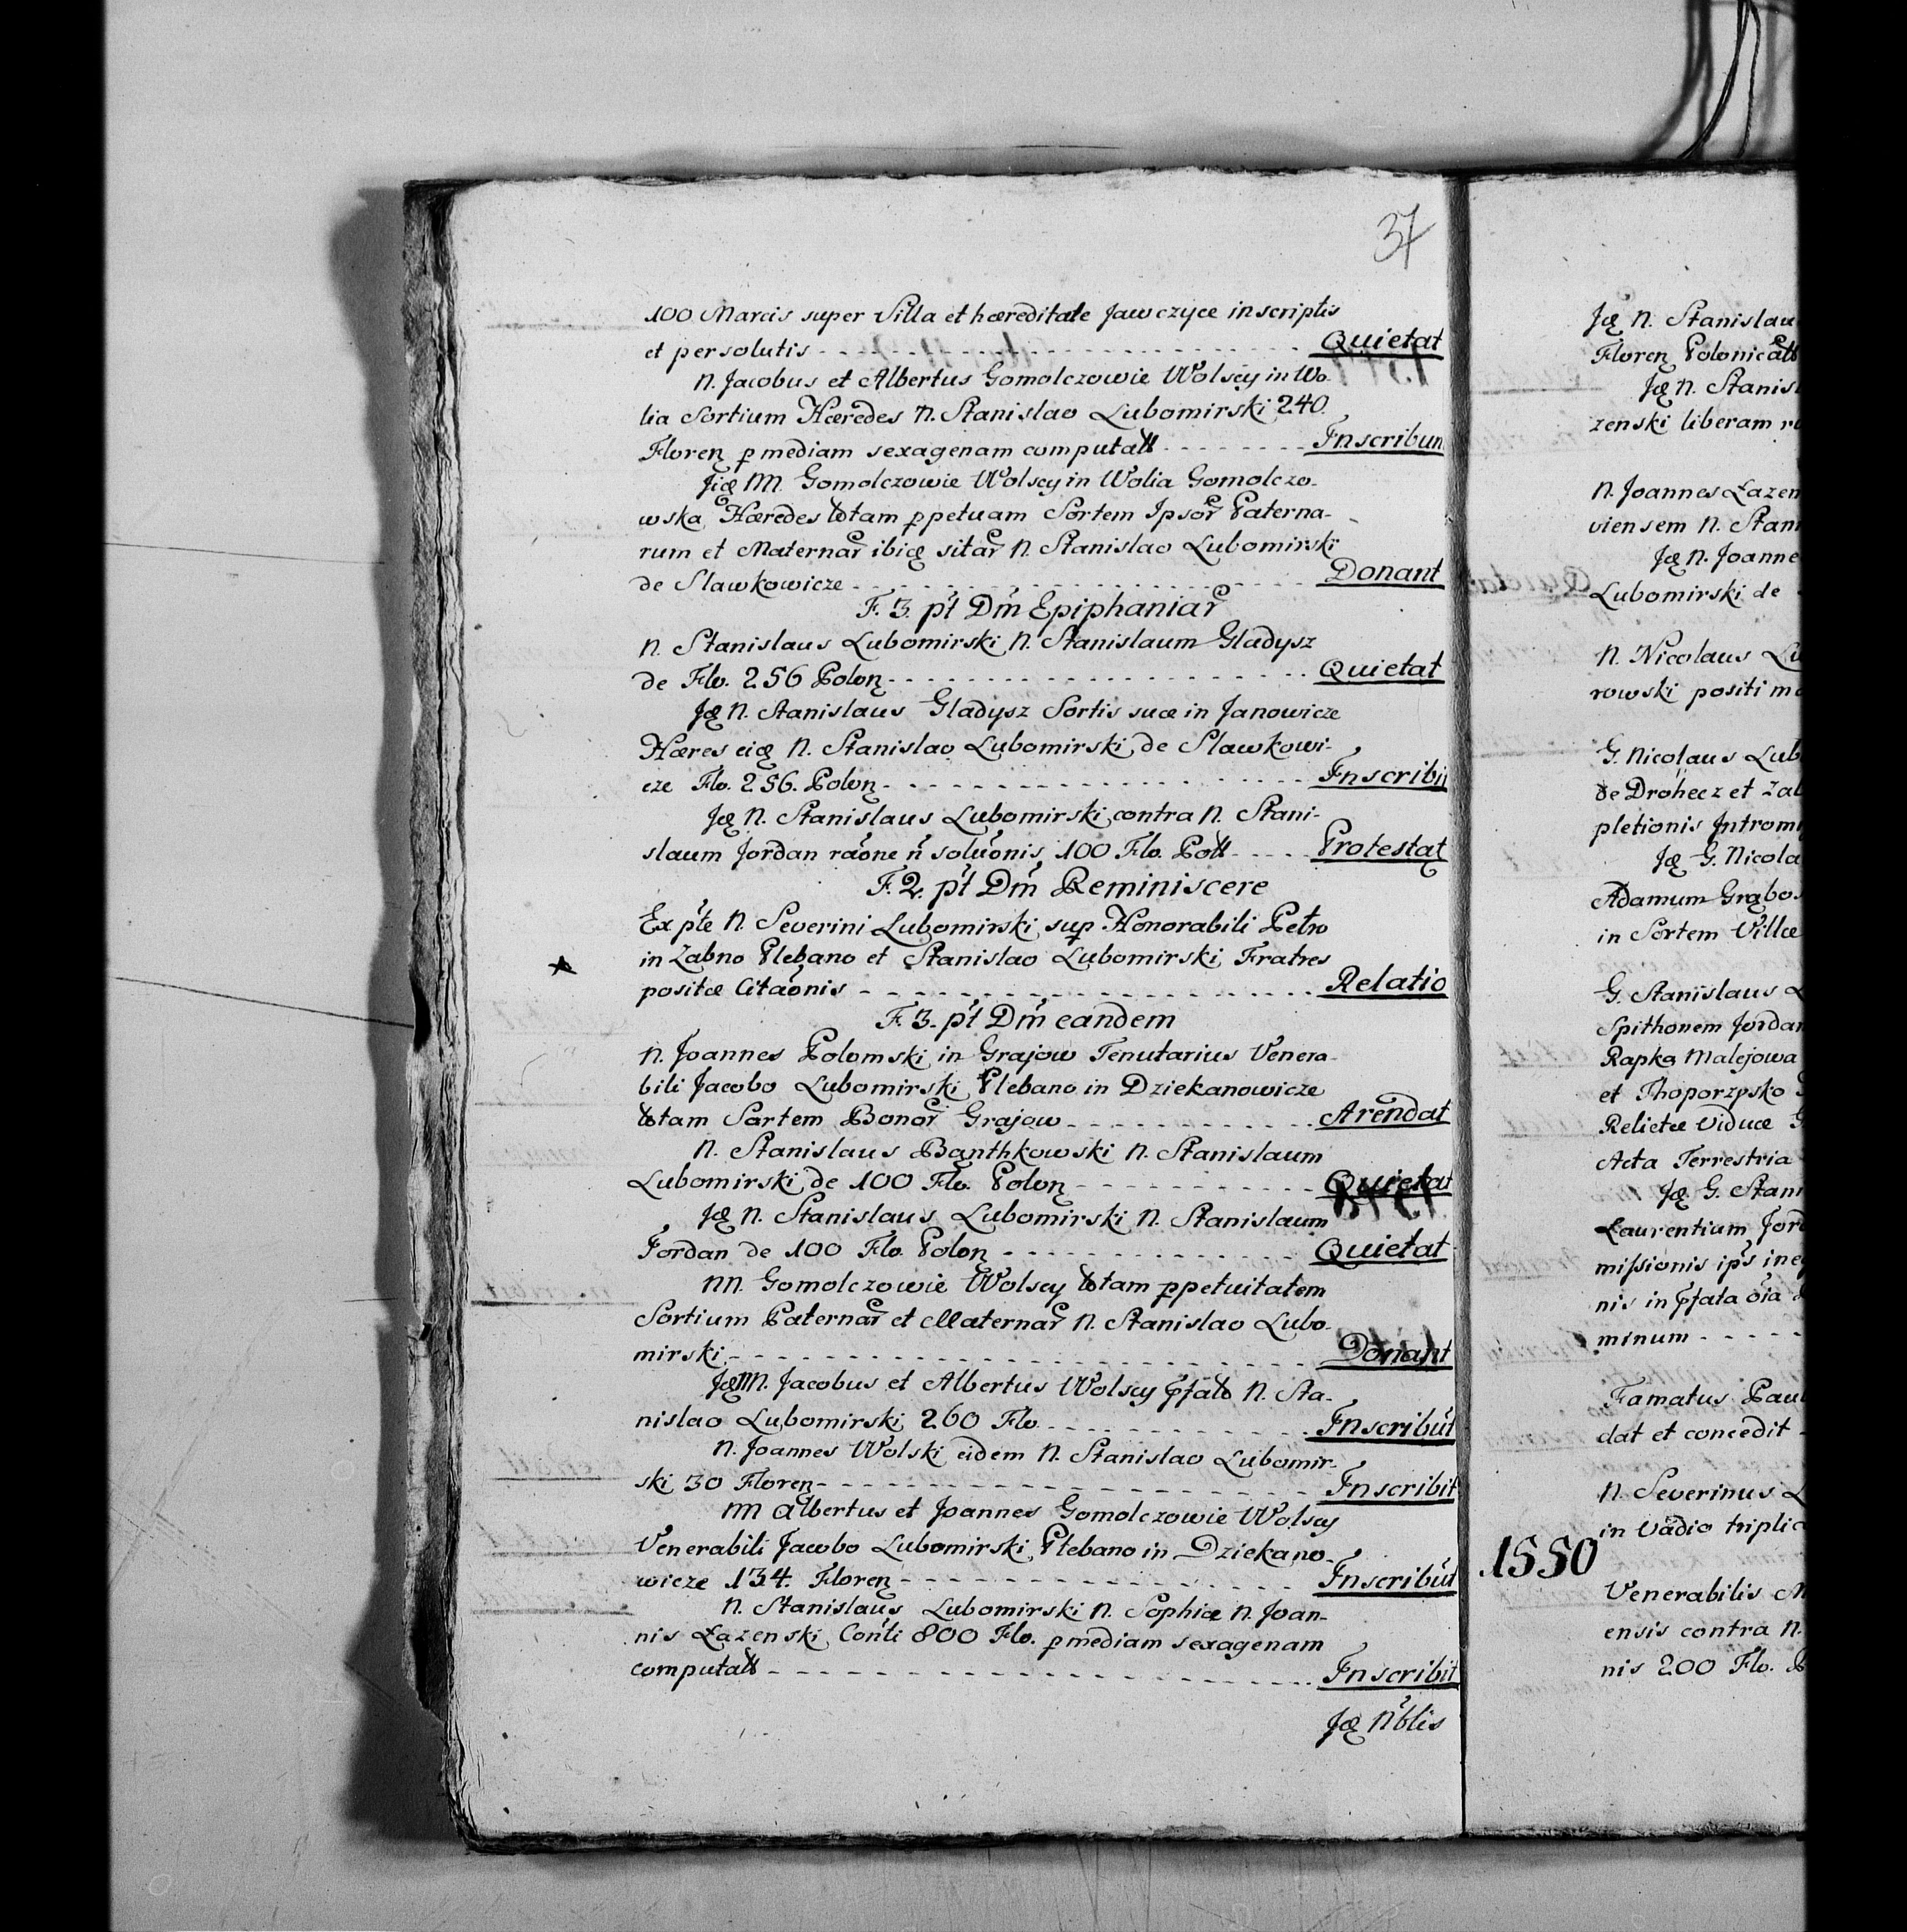 37
100 Marcis super Villa et hæreditate Jawczyce inscriptis
et persolutis - - - Quietat
N. Jacobus et Albertus Gomolczowie Wolscy in Wo-
lia Sortium Hæredes N. Stanislao Lubomirski 240
Floren p mediam sexagenam computatt - - - Inscribun
NN. Gomolczowie Wolscy in Wolia Gomolczo-
wska Hæredes totam ppetuam Sortem Ipsor Paterna-
rum et Maternar ibiq sitar N. Stanislao Lubomirski
de Slawkowicze - - - Donant
F. 3. pt Dm Epiphaniar
N. Stanislaus Lubomirski N. Stanislaum Gladysz
de Flo. 256 Polon - - - Quietat
Idę N. Stanislaus Gladysz Sortis suæ in Janowicze
Hæres eidę N. Stanislao Lubomirski de Slawkowi-
cze Flo. 256. Polon - - - Inscribit
Idę N. Stanislaus Lubomirski contra N. Stani-
slaum Jordan raone n soluonis 100 Flo. Poll - - - Protestat
F. 2. pt Dm Reminiscere
Ex pte N. Severini Lubomirski sup Honorabili Petro
in Zabno Plebano et Stanislao Lubomirski Fratres
positæ Citaonis - - - Relatio
F. 3. pt Dm eandem
N. Joannes Polomski in Grajow Tenutarius Venera-
bili Jacobo Lubomirski Plebano in Dziekanowicze
totam Sortem Bonor Grajow - - - Arendat
N. Stanislaus Banthkowski N. Stanislaum
Lubomirski de 100 Flo. Polon - - - Quietat
Idę N. Stanislaus Lubomirski N. Stanislaum
Jordan de 100 Flo. Polon - - - Quietat
NN. Gomolczowie Wolscy totam ppetuitatem
Sortium Paternar et Maternar N. Stanislao Lubo-
mirski - - - Donant
NN. Jacobus et Albertus Wolscy pfato N. Sta-
nislao Lubomirski 260 Flo. - - - Inscribut
N. Joannes Wolski eidem N. Stanislao Lubomir-
ski 30 Floren - - - Inscribit
NN Albertus et Joannes Gomolczowie Wolscy
Venerabili Jacobo Lubomirski Plebano in Dziekano-
wicze 134. Floren - - - Inscribut
N. Stanislaus Lubomirski N. Sophiæ N. Joan-
nis Łazenski Conti 800 Flo. p mediam sexagenam
computatt - - - Inscribit
Idę Nblis
Idę N. Stanislau
Floren Polonicatt
Idę N. Stanis
zenski liberam
N. Joannes Łazen
viensem N. Stan
Idę N. Joanne
Lubomirski de
N. Nicolaus Lu
rowski positi
G. Nicolaus Lub
de Drohecz et Zab
pletionis Introm
Idę G. Nicola
Adamum Grabos
in Sortem Villæ
G. Stanislaus L
Spithonem Jordan
Rapka Malejowa
et Thoporzysko
Relictæ Viduæ G
Acta Terrestria
Idę G. Stan
Laurentium Jord
missionis ips
nis in pfata oia
minum - - -
Famatus Paul
dat et concedit
N. Severinus L
in Vadio triplic
1550
Venerabilis
ensis contra N.
nis 200 Flo. P